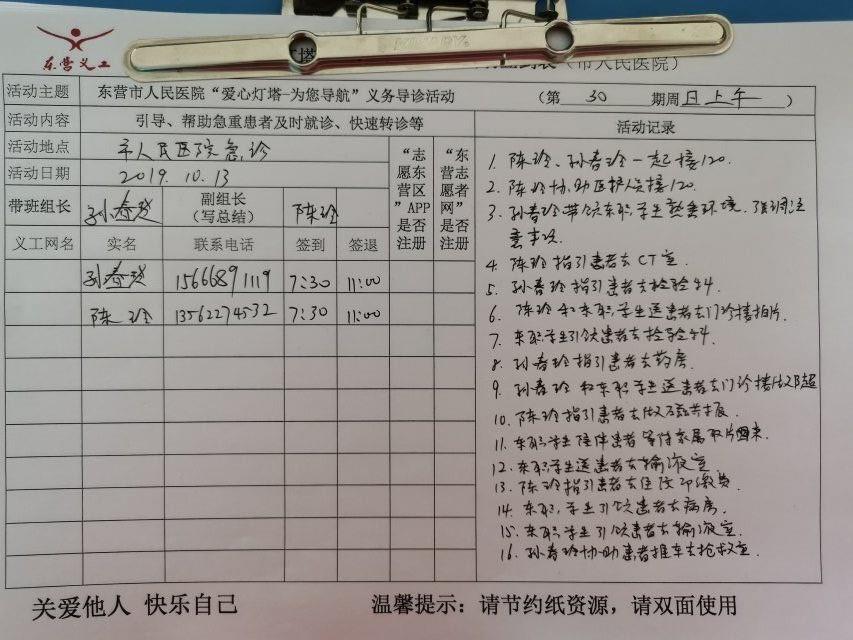 东营义工
（市人民医院）
活动主题 东营市人民医院“爱心灯塔-为您导航”义务导诊活动 （第 30 期周 日上午 ）
活动内容 引导、帮助急重患者及时就诊、快速转诊等
活动地点 市人民医院急诊
活动日期 2019.10.13
带班组长 孙春玲 副组长（写总结） 陈玲
“志愿东营区”APP是否注册
“东营志愿者网”是否注册
义工网名 实名 联系电话 签到 签退
孙春玲 15666891119 7:30 11:00
陈玲 13562274532 7:30 11:00
活动记录
1. 陈玲、孙春玲一起接120.
2. 陈玲协助医护人员接120.
3. 孙春玲带领东职学生熟悉环境,强调注
意事项.
4. 陈玲指引患者去CT室.
5. 孙春玲指引患者去检验科.
6. 陈玲和东职学生送患者去门诊楼拍片.
7. 东职学生引领患者去检验科.
8. 孙春玲指引患者去药房.
9. 孙春玲和东职学生送患者去门诊楼做B超
10. 陈玲指引患者去做磁共振.
11. 东职学生陪伴患者等待家属取片回来.
12. 东职学生送患者去输液室.
13. 陈玲指引患者去住院印缴费.
14. 东职学生引领患者去病房.
15. 东职学生引领患者去输液室.
16. 孙春玲协助患者推车去抢救室.
关爱他人 快乐自己
温馨提示：请节约纸资源，请双面使用